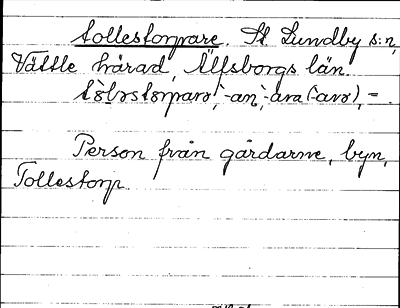 tollestorpare. St Lundby s:n,
Vättle härad, Älfsborgs län.
tòləstòrparə, -an, -ara (-arə), =.
Person från gårdarne, byn,
Tollestorp.